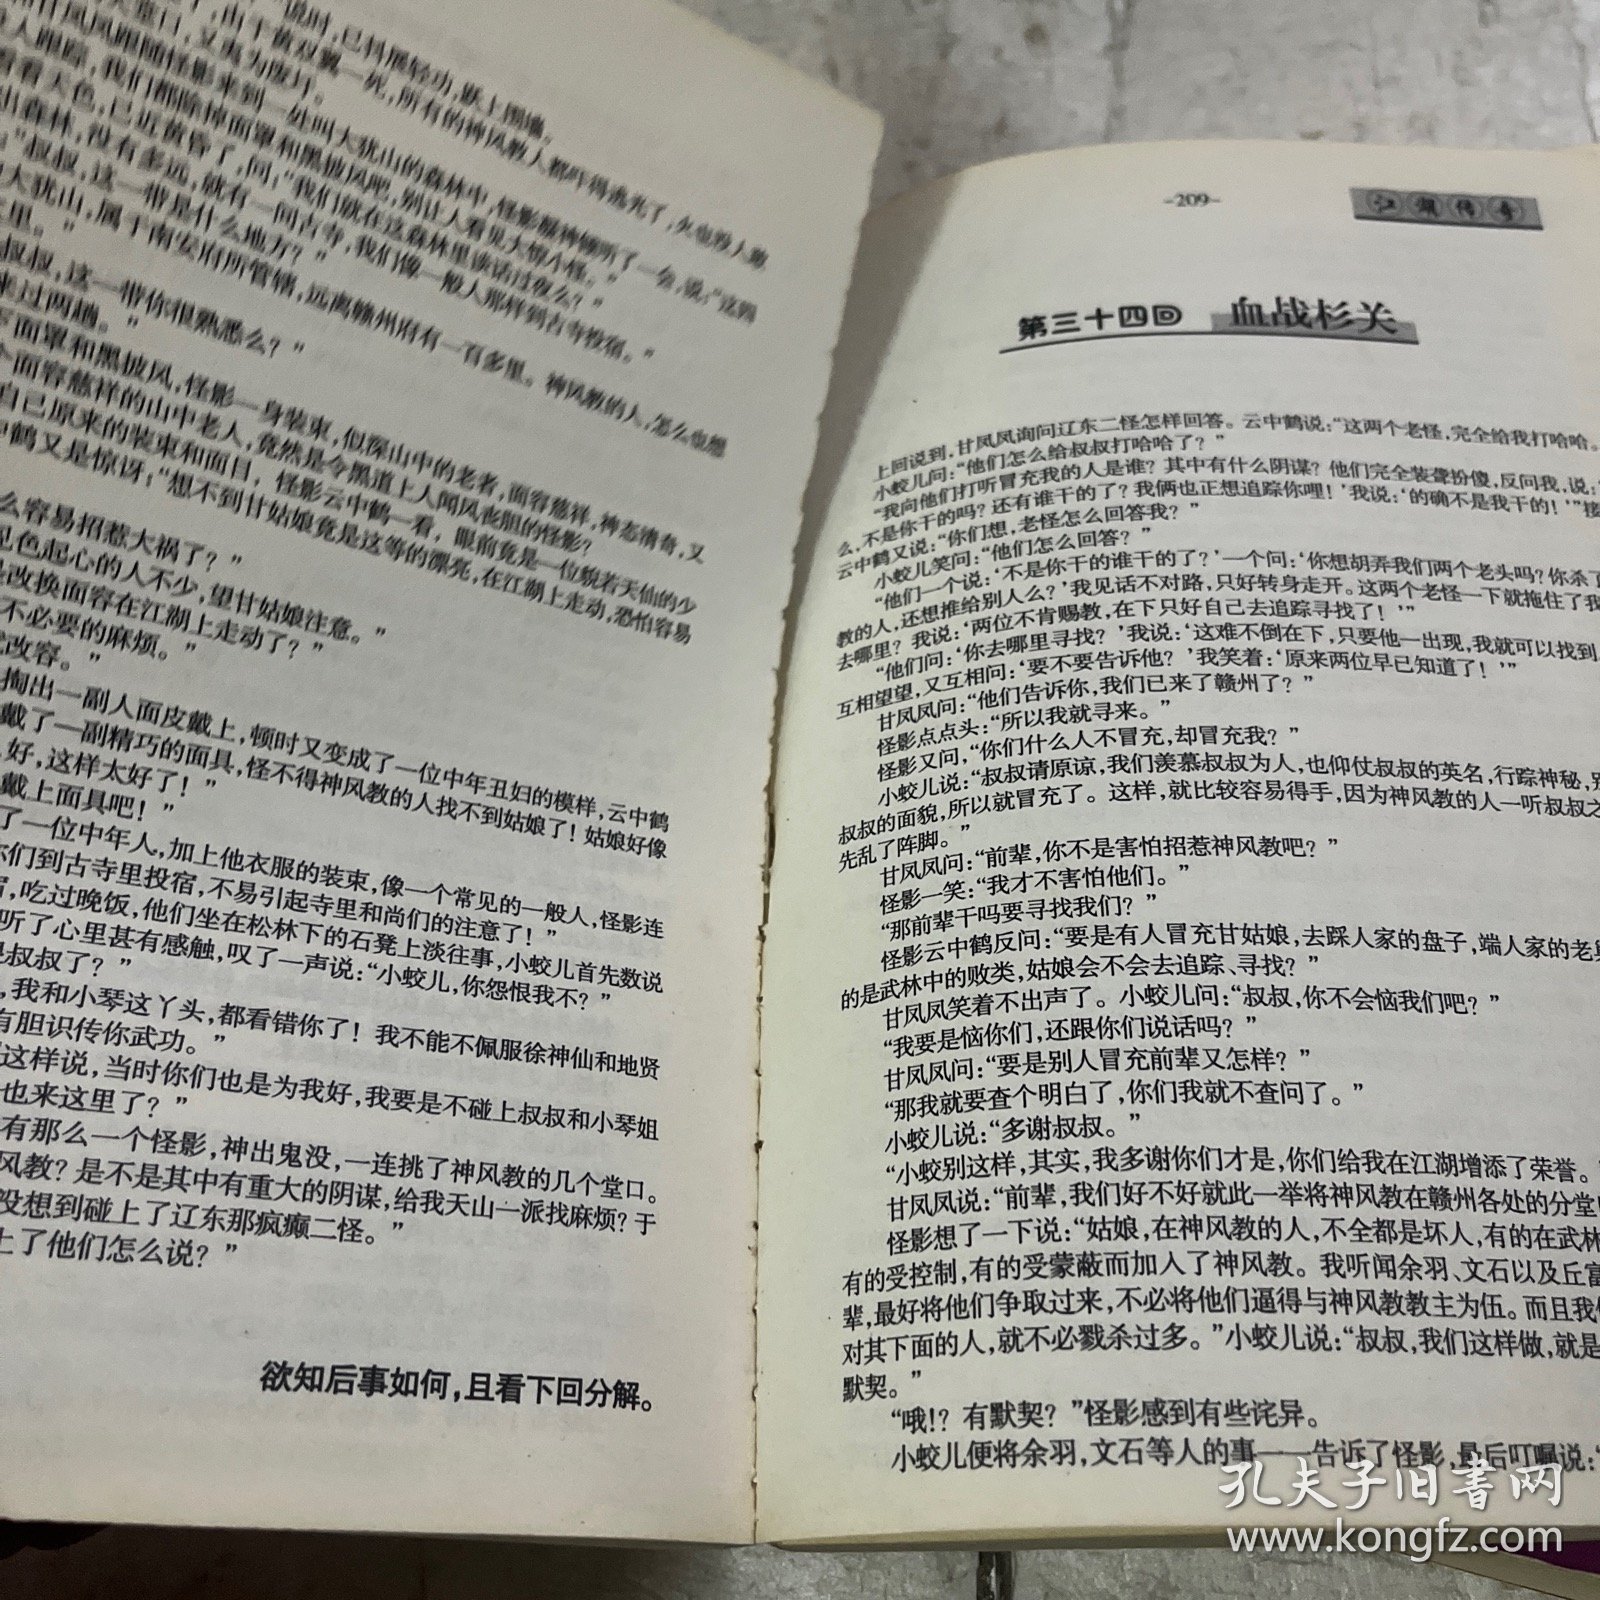 说时，已抖展轻功，跃上围墙。
堂口，又夷为废圩。
看看天色，已近黄昏了，问：“我们就在这森林里谈话过夜么？”
出森林，没有多远，就有一间古寺，我们像一般人那样到古寺投宿。”
“叔叔，这一带是什么地方？”
大犹山，属于南安府所管辖，远离赣州府有一百多里。神风教的人，怎么也想
里。”
叔叔，这一带你很熟悉么？”
来过两趟。”
下面罩和黑披风，怪影一身装束，似深山中的老者，面容慈祥，神态清奇，又
个面容慈祥的山中老人，竟然是令黑道上人闻风丧胆的怪影？
自己原来的装束和面目，怪影云中鹤一看，眼前竟是一位貌若天仙的少
中鹤又是惊讶：“想不到甘姑娘竟是这等的漂亮，在江湖上走动，恐怕容易
么容易招惹大祸了？”
见色起心的人不少，望甘姑娘注意。”
是改换面容在江湖上走动了？”
不必要的麻烦。”
改容。”
掏出一副人面皮戴上，顿时又变成了一位中年丑妇的模样，云中鹤
戴了一副精巧的面具，怪不得神风教的人找不到姑娘了！姑娘好像
好，这样太好了！”
戴上面具吧！”
了一位中年人，加上他衣服的装束，像一个常见的一般人，怪影连
你们到古寺里投宿，不易引起寺里和尚们的注意了！”
宿，吃过晚饭，他们坐在松林下的石凳上淡往事，小蛟儿首先数说
听了心里甚有感触，叹了一声说：“小蛟儿，你怨恨我不？”
是叔叔了？”
，我和小琴这丫头，都看错你了！我不能不佩服徐神仙和地贤
有胆识传你武功。”
这样说，当时你们也是为我好，我要是不碰上叔叔和小琴姐
也来这里了？”
有那么一个怪影，神出鬼没，一连挑了神风教的几个堂口。
风教？是不是其中有重大的阴谋，给我天山一派找麻烦？于
没想到碰上了辽东那疯癫二怪。”
上了他们怎么说？”
欲知后事如何，且看下回分解。
-209-
江湖传奇
第三十四回 血战杉关
上回说到，甘凤凤询问辽东二怪怎样回答。云中鹤说：“这两个老怪，完全给我打哈哈。
小蛟儿问：“他们怎么给叔叔打哈哈了？”
“我向他们打听冒充我的人是谁？其中有什么阴谋？他们完全装聋扮傻，反问我，说：
么，不是你干的吗？还有谁干的了？我俩也正想追踪你哩！’我说：‘的确不是我干的！’”接
云中鹤又说：“你们想，老怪怎么回答我？”
小蛟儿笑问：“他们怎么回答？”
“他们一个说：‘不是你干的谁干的了？’一个问：‘你想胡弄我们两个老头吗？你杀了
教的人，还想推给别人么？’我见话不对路，只好转身走开。这两个老怪一下就拖住了我
去哪里？我说：‘两位不肯赐教，在下只好自己去追踪寻找了！’”
“他们问：‘你去哪里寻找？’我说：‘这难不倒在下，只要他一出现，我就可以找到
互相望望，又互相问：‘要不要告诉他？’我笑着：‘原来两位早已知道了！’”
甘凤凤问：“他们告诉你，我们已来了赣州了？”
怪影点点头：“所以我就寻来。”
怪影又问，“你们什么人不冒充，却冒充我？”
小蛟儿说：“叔叔请原谅，我们羡慕叔叔为人，也仰仗叔叔的英名，行踪神秘，别
叔叔的面貌，所以就冒充了。这样，就比较容易得手，因为神风教的人一听叔叔之
先乱了阵脚。”
甘凤凤问：“前辈，你不是害怕招惹神风教吧？”
怪影一笑：“我才不害怕他们。”
“那前辈干吗要寻找我们？”
怪影云中鹤反问：“要是有人冒充甘姑娘，去踩人家的盘子，端人家的老
的是武林中的败类，姑娘会不会去追踪、寻找？”
甘凤凤笑着不出声了。小蛟儿问：“叔叔，你不会恼我们吧？”
“我要是恼你们，还跟你们说话吗？”
甘凤凤问：“要是别人冒充前辈又怎样？”
“那我就要查个明白了，你们我就不查问了。”
小蛟儿说：“多谢叔叔。”
“小蛟别这样，其实，我多谢你们才是，你们给我在江湖增添了荣誉。
甘凤凤说：“前辈，我们好不好就此一举将神风教在赣州各处的分堂
怪影想了一下说：“姑娘，在神风教的人，不全都是坏人，有的在武林
有的受控制，有的受蒙蔽而加入了神风教。我听闻余羽、文石以及丘富
辈，最好将他们争取过来，不必将他们逼得与神风教教主为伍。而且我
对其下面的人，就不必戮杀过多。”小蛟儿说：“叔叔，我们这样做，就是
默契。”
“哦！？有默契？”怪影感到有些诧异。
小蛟儿便将余羽，文石等人的事一一告诉了怪影，最后叮嘱说：“
孔夫子旧书网
www.kongfz.com